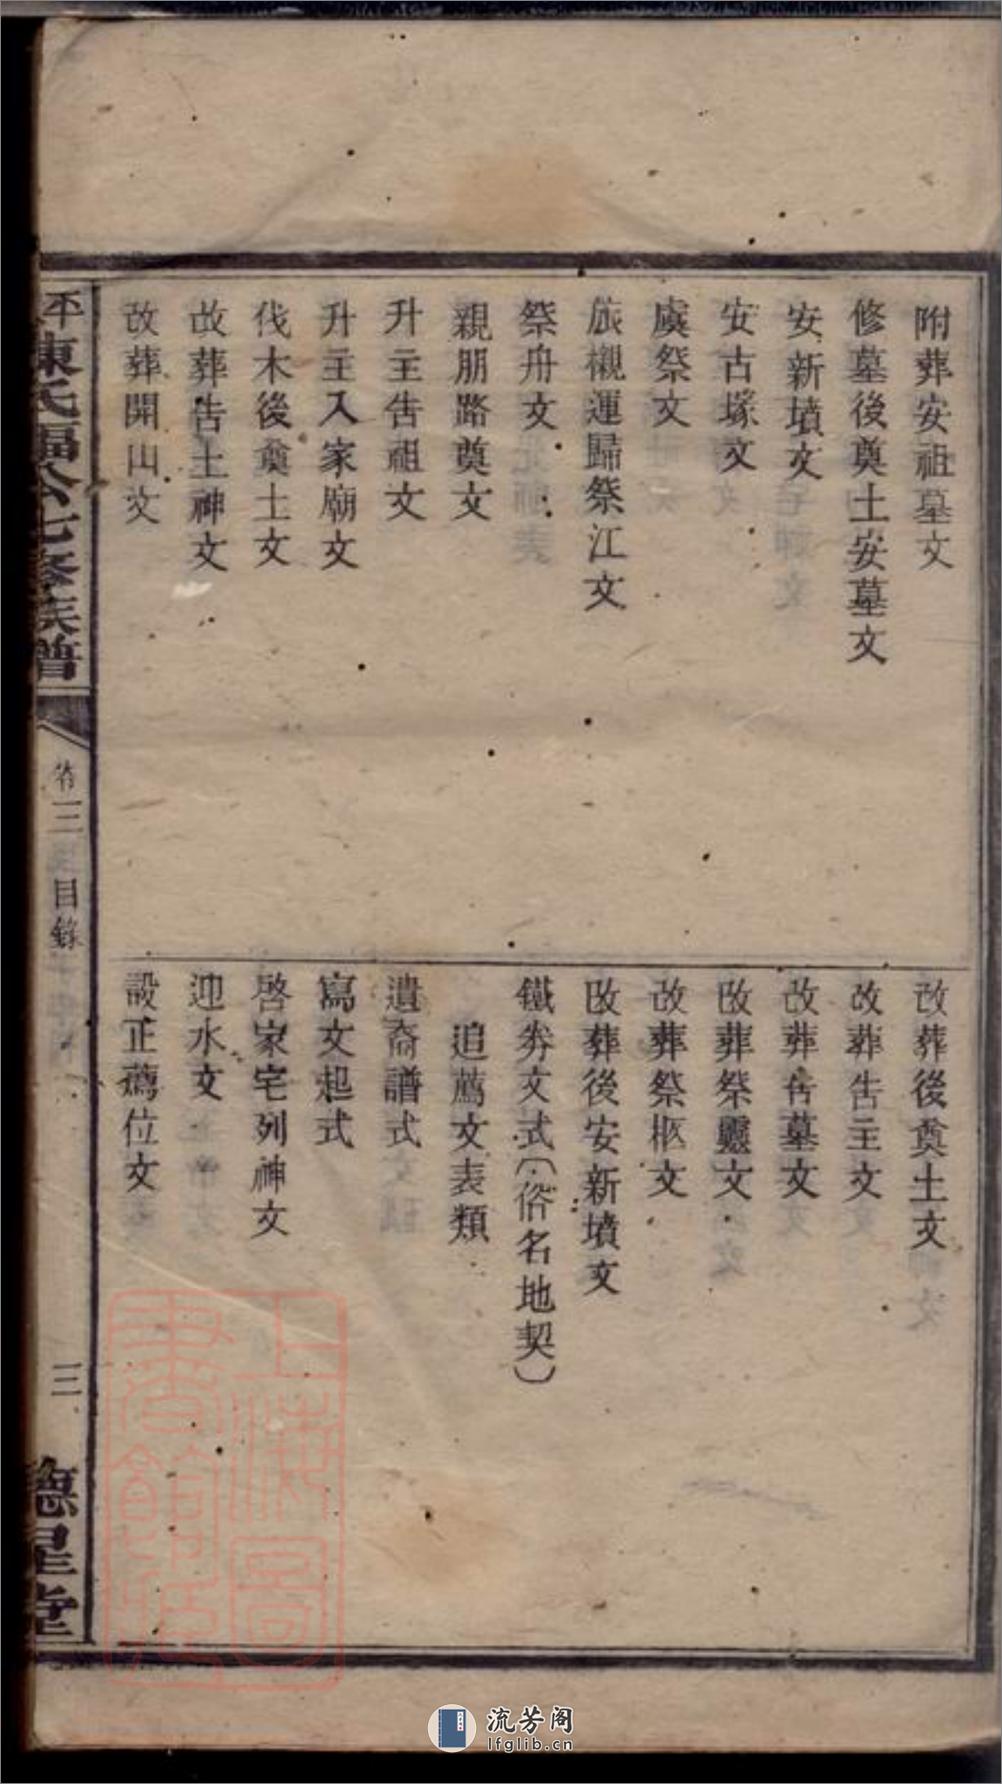 附葬安祖墓文
修墓後奠土安墓文
安新墳文
安古塚文
虞祭文
旅櫬運歸祭江文
祭舟文
親朋路奠文
升主告祖文
升主入家廟文
伐木後奠土文
改葬告土神文
改葬開山文
改葬後奠土文
改葬告主文
改葬告墓文
改葬祭靈文
改葬祭柩文
改葬後安新墳文
鐵券文式（俗名地契）
追薦文表類
遺裔譜式
寫文起式
啓家宅列神文
迎水文
設正薦位文
平陳氏福公七修族譜
卷三 目錄
三
德星堂
上海圖書館藏
流芳阁
lfglib.cn